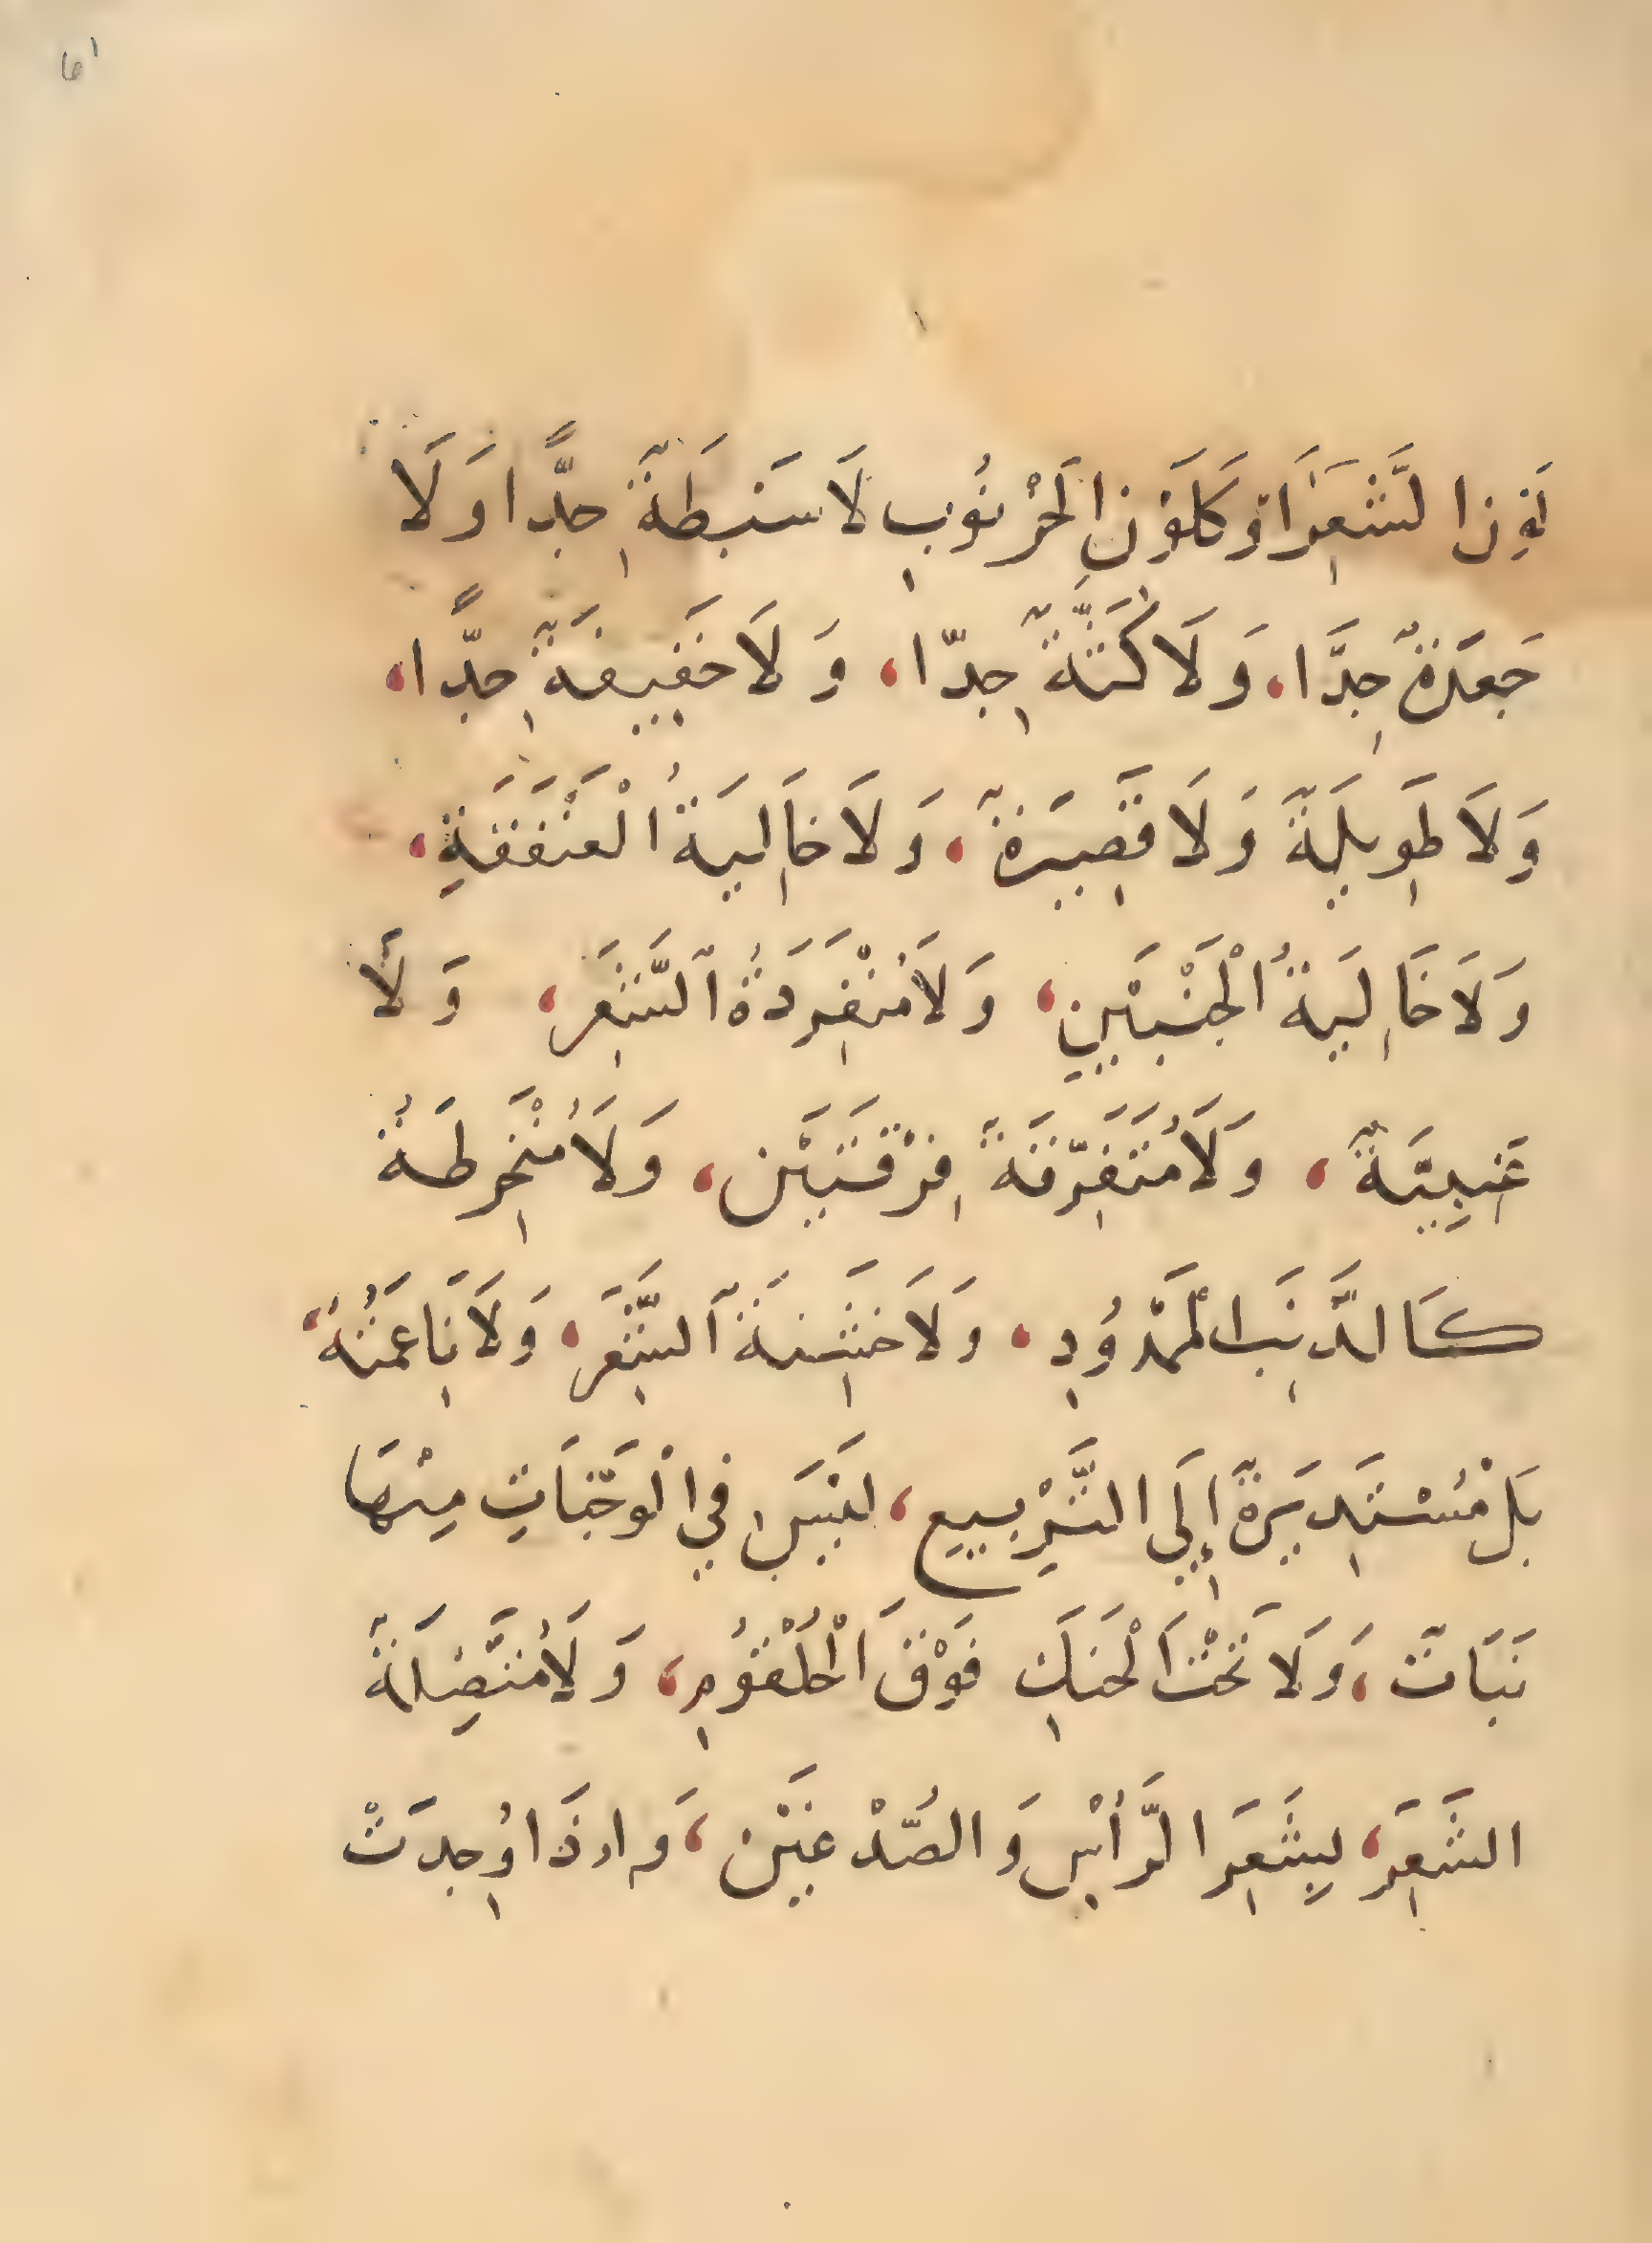 لَوْنِ الشَّعِرَ اَوْ كَلَوْنِ الَخَرْنُوبِ لَا سَبْطَةً جِدًّا وَلَا
جَعِدَةً جِدَّا، وَلَا كَثَّةً جِدّا، وَ لَا خَفِيفَةً جِدًّا،
وَلَا طَوِيلَةً وَلَا قَصِيرَةً، وَلَا خَالِيَةُ الْعَنْفَقَةِ،
وَلَا خَالِيَةُ الْجَنْبَيْنِ، وَلَا مُنْفَرِدَةُ الشَّعِرَ، وَ لَا
عَنِيِيَّةً، وَلَا مُتَفَرِّقَةً فِرْقَتَيْنِ، وَلَا مُنْخَرِطَةُ
كَالذَّنَبِ الْمَمْدُودِ، وَلَا خَشِنَةَ الشَّعِرَ، وَلَا نَاعِمَتُهُ،
بَلْ مُسْتَدِيرَةً إِلَي التَّرْبِيعِ، لَيْسَ فِي الْوَجَنَاتِ مِنْهَا
نَبَاتً، وَلَا تَحْتَ الْحَنَكِ فَوْقَ الْحُلْقُومِ، وَ لَا مُتَّصِلَةً
الشَعِرَ، بِشَعِرَ الرَّأْسِ وَ الصُّدْغَيْنِ، وَ اِذَا وُجِدَتْ